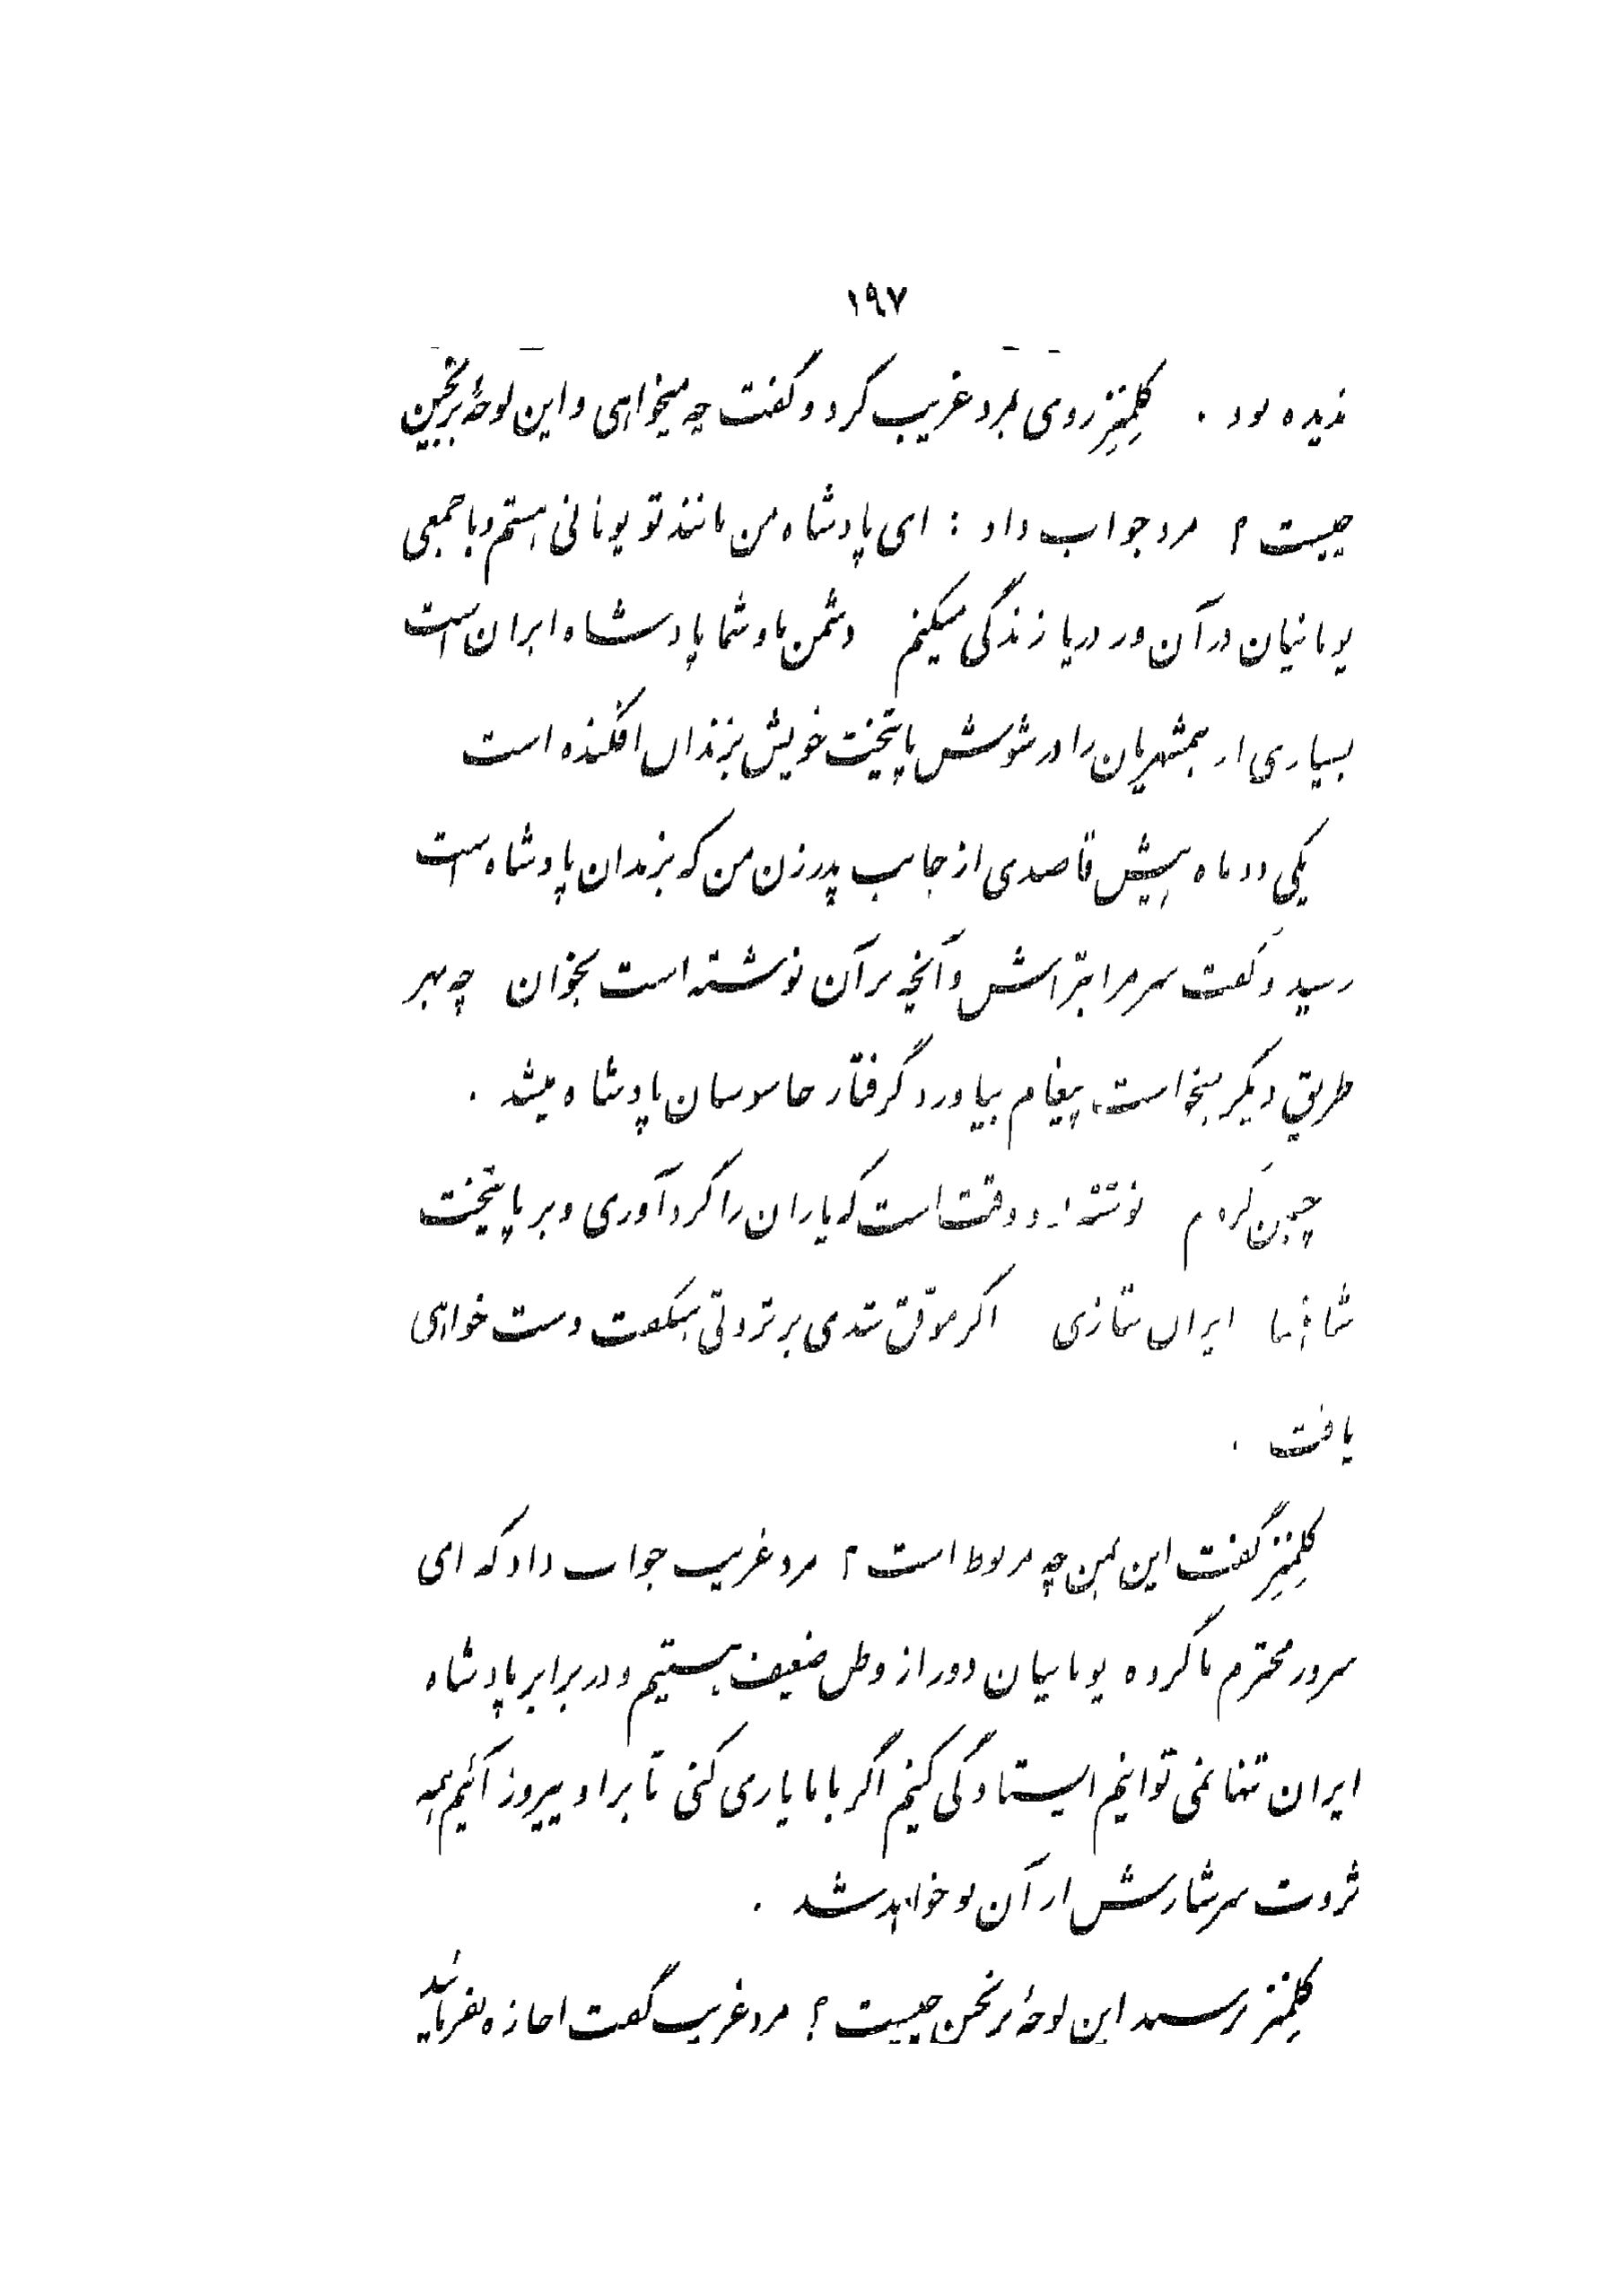 ۱۹۷
ندیده بود . کلِمنِز روی بمرد غریب کرد و گفت چه میخواهی و این لوحهٔ برنجین
چیست ؟ مرد جواب داد : ای پادشاه من مانند تو یونانی هستم و با جمعی
یونانیان در آن ور دریا زندگی میکنم دشمن ما و شما پادشاه ایران است
بسیاری از همشهریان را در شوش پایتخت خویش بزندان افکنده است
یکی دو ماه پیش قاصدی از جانب پدر زن من که بزندان پادشاه است
رسید و گفت سر مرا بتراش و آنچه بر آن نوشته است بخوان چه بهر
طریق دیگر میخواست پیغام بیاورد گرفتار جاسوسان پادشاه میشد .
چنین کردم نوشته بود وقت است که یاران را گرد آوری و بر پایتخت
شاهنشاه ایران بتازی اگر موفق شدی بر ثروتی هنگفت دست خواهی
یافت .
کلِمنِز گفت این بمن چه مربوط است ؟ مرد غریب جواب داد که ای
سرور محترم ما گروه یونانیان دور از وطن ضعیف هستیم و در برابر پادشاه
ایران تنها نمی توانیم ایستادگی کنیم اگر با ما یاری کنی تا بر او پیروز آئیم همه
ثروت سرشارش از آن تو خواهد شد .
کلِمنِز پرسید این لوحهٔ برنجین چیست ؟ مرد غریب گفت اجازه بفرمائید